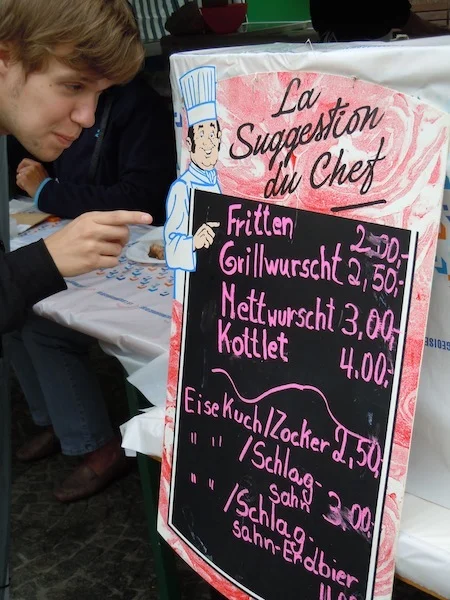 La
Suggestion
du Chef
Fritten 2.00,-
Grillwurscht 2,50,-
Mettwurscht 3,00,-
Kottlet 4.00,-
EiseKuch/Zocker 2,50,-
" " /Schlag-
sahn 3,00,-
" " /Schlag-
sahn-Erdbier